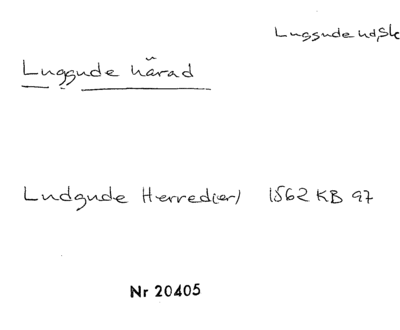 Luggude hd, Sk
Luggude härad
Ludgude Herred(er) 1562 KB 97
Nr 20405